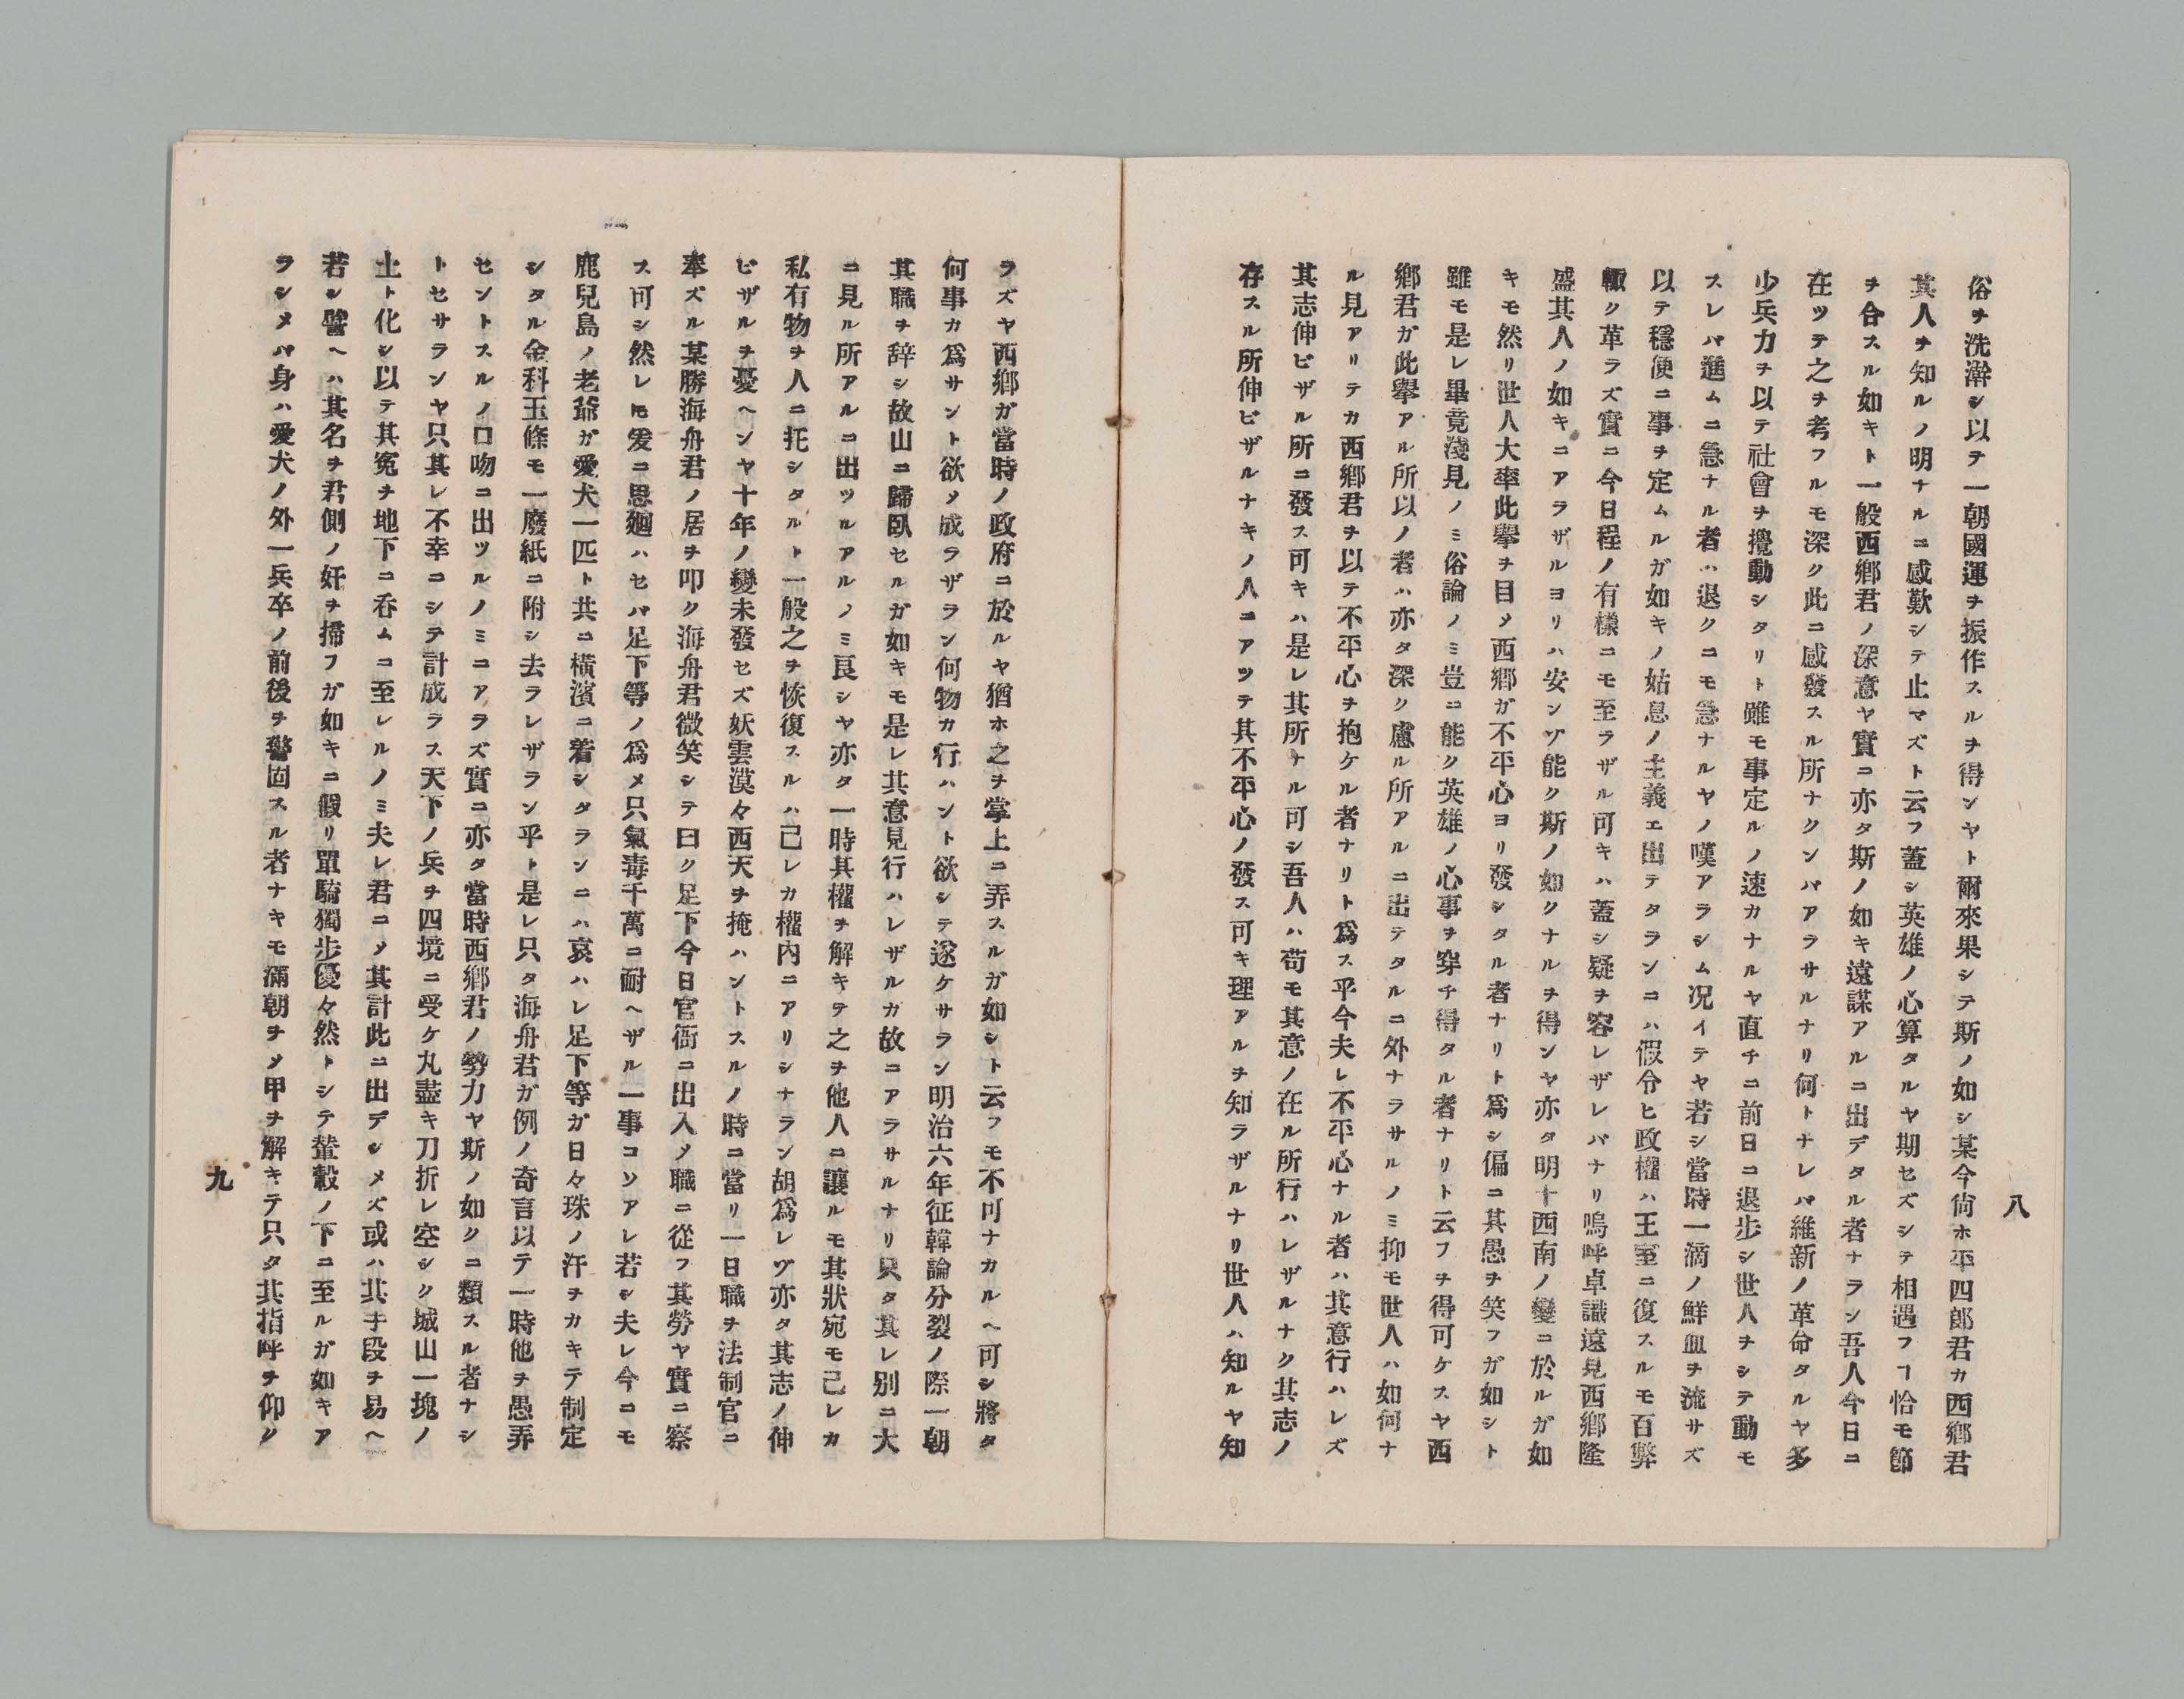 八
俗ヲ洗滌シ以テ一朝國運ヲ振作スルヲ得ンヤト爾來果シテ斯ノ如シ某今尙ホ平四郎君カ西鄕君
其人ヲ知ルノ明ナルニ感歎シテ止マズト云フ蓋シ英雄ノ心算タルヤ期セズシテ相遇フヿ恰モ節
ヲ合スル如キト一般西鄕君ノ深意ヤ實ニ亦タ斯ノ如キ遠謀アルニ出デタル者ナラン吾人今日ニ
在ツテ之ヲ考フルモ深ク此ニ感發スル所ナクンバアラサルナリ何トナレバ維新ノ革命タルヤ多
少兵力ヲ以テ社會ヲ攪動シタリト雖モ事定ルノ速カナルヤ直チニ前日ニ退步シ世人ヲシテ動モ
スレバ進ムニ急ナル者ハ退クニモ急ナルヤノ嘆アラシム况イテヤ若シ當時一滴ノ鮮血ヲ流サズ
以テ穩便ニ事ヲ定ムルガ如キノ姑息ノ主義エ出テタランニハ假令ヒ政權ハ王室ニ復スルモ百弊
輙ク革ラズ實ニ今日程ノ有樣ニモ至ラザル可キハ蓋シ疑ヲ容レザレバナリ嗚呼卓識遠見西鄕隆
盛其人ノ如キニアラザルヨリハ安ンゾ能ク斯ノ如クナルヲ得ンヤ亦タ明十西南ノ變ニ於ルガ如
キモ然リ世人大率此擧ヲ目メ西鄕ガ不平心ヨリ發シタル者ナリト爲シ偏ニ其愚ヲ笑フガ如シト
雖モ是レ畢竟淺見ノミ俗論ノミ豈ニ能ク英雄ノ心事ヲ穿チ得タル者ナリト云フヲ得可ケスヤ西
鄕君ガ此擧アル所以ノ者ハ亦タ深ク慮ル所アルニ出テタルニ外ナラサルノミ抑モ世人ハ如何ナ
ル見アリテカ西鄕君ヲ以テ不平心ヲ抱ケル者ナリト爲ス乎今夫レ不平心ナル者ハ其意行ハレズ
其志伸ビザル所ニ發ス可キハ是レ其所ナル可シ吾人ハ苟モ其意ノ在ル所行ハレザルナク其志ノ
存スル所伸ビザルナキノ人ニアツテ其不平心ノ發ス可キ理アルヲ知ラザルナリ世人ハ知ルヤ知
ラズヤ西鄕ガ當時ノ政府ニ於ルヤ猶ホ之ヲ掌上ニ弄スルガ如シト云フモ不可ナカルヘ可シ將タ
何事カ爲サント欲メ成ラザラン何物カ行ハント欲シテ遂ケサラン明治六年征韓論分裂ノ際一朝
其職ヲ辞シ故山ニ歸臥セルガ如キモ是レ其意見行ハレザルガ故ニアラサルナリ只タ其レ別ニ大
ニ見ル所アルニ出ツルアルノミ良シヤ亦タ一時其權ヲ解キテ之ヲ他人ニ讓ルモ其狀宛モ己レカ
私有物ヲ人ニ托シタルト一般之ヲ恢復スルハ己レカ權內ニアリシナラン胡爲レゾ亦タ其志ノ伸
ビザルヲ憂ヘンヤ十年ノ變未發セズ妖雲漠々西天ヲ掩ハントスルノ時ニ當リ一日職ヲ法制官ニ
奉ズル某勝海舟君ノ居ヲ叩ク海舟君微笑シテ曰ク足下今日官衙ニ出入メ職ニ從フ其勞ヤ實ニ察
ス可シ然レ𪜈爰ニ思廻ハセバ足下等ノ爲メ只氣毒千萬ニ耐ヘザル一事コソアレ若シ夫レ今ニモ
鹿兒島ノ老爺ガ愛犬一匹ト共ニ橫濱ニ着シタランニハ哀ハレ足下等ガ日々珠ノ汗ヲカキテ制定
シタル金科玉條モ一廢紙ニ附シ去ラレザラン乎ト是レ只タ海舟君ガ例ノ奇言以テ一時他ヲ愚弄
セントスルノ口吻ニ出ツルノミニアラズ實ニ亦タ當時西鄕君ノ勢力ヤ斯ノ如クニ類スル者ナシ
トセサランヤ只其レ不幸ニシテ計成ラス天下ノ兵ヲ四境ニ受ケ丸盡キ刀折レ空シク城山一塊ノ
土ト化シ以テ其冤ヲ地下ニ呑ムニ至レルノミ夫レ君ニメ其計此ニ出デシメズ或ハ其手段ヲ易ヘ
若シ譬ヘハ其名ヲ君側ノ奸ヲ掃フガ如キニ假リ單騎獨步優々然トシテ輦轂ノ下ニ至ルガ如キア
ラシメバ身ハ愛犬ノ外一兵卒ノ前後ヲ警固スル者ナキモ滿朝ヲメ甲ヲ解キテ只タ其指呼ヲ仰シ
九